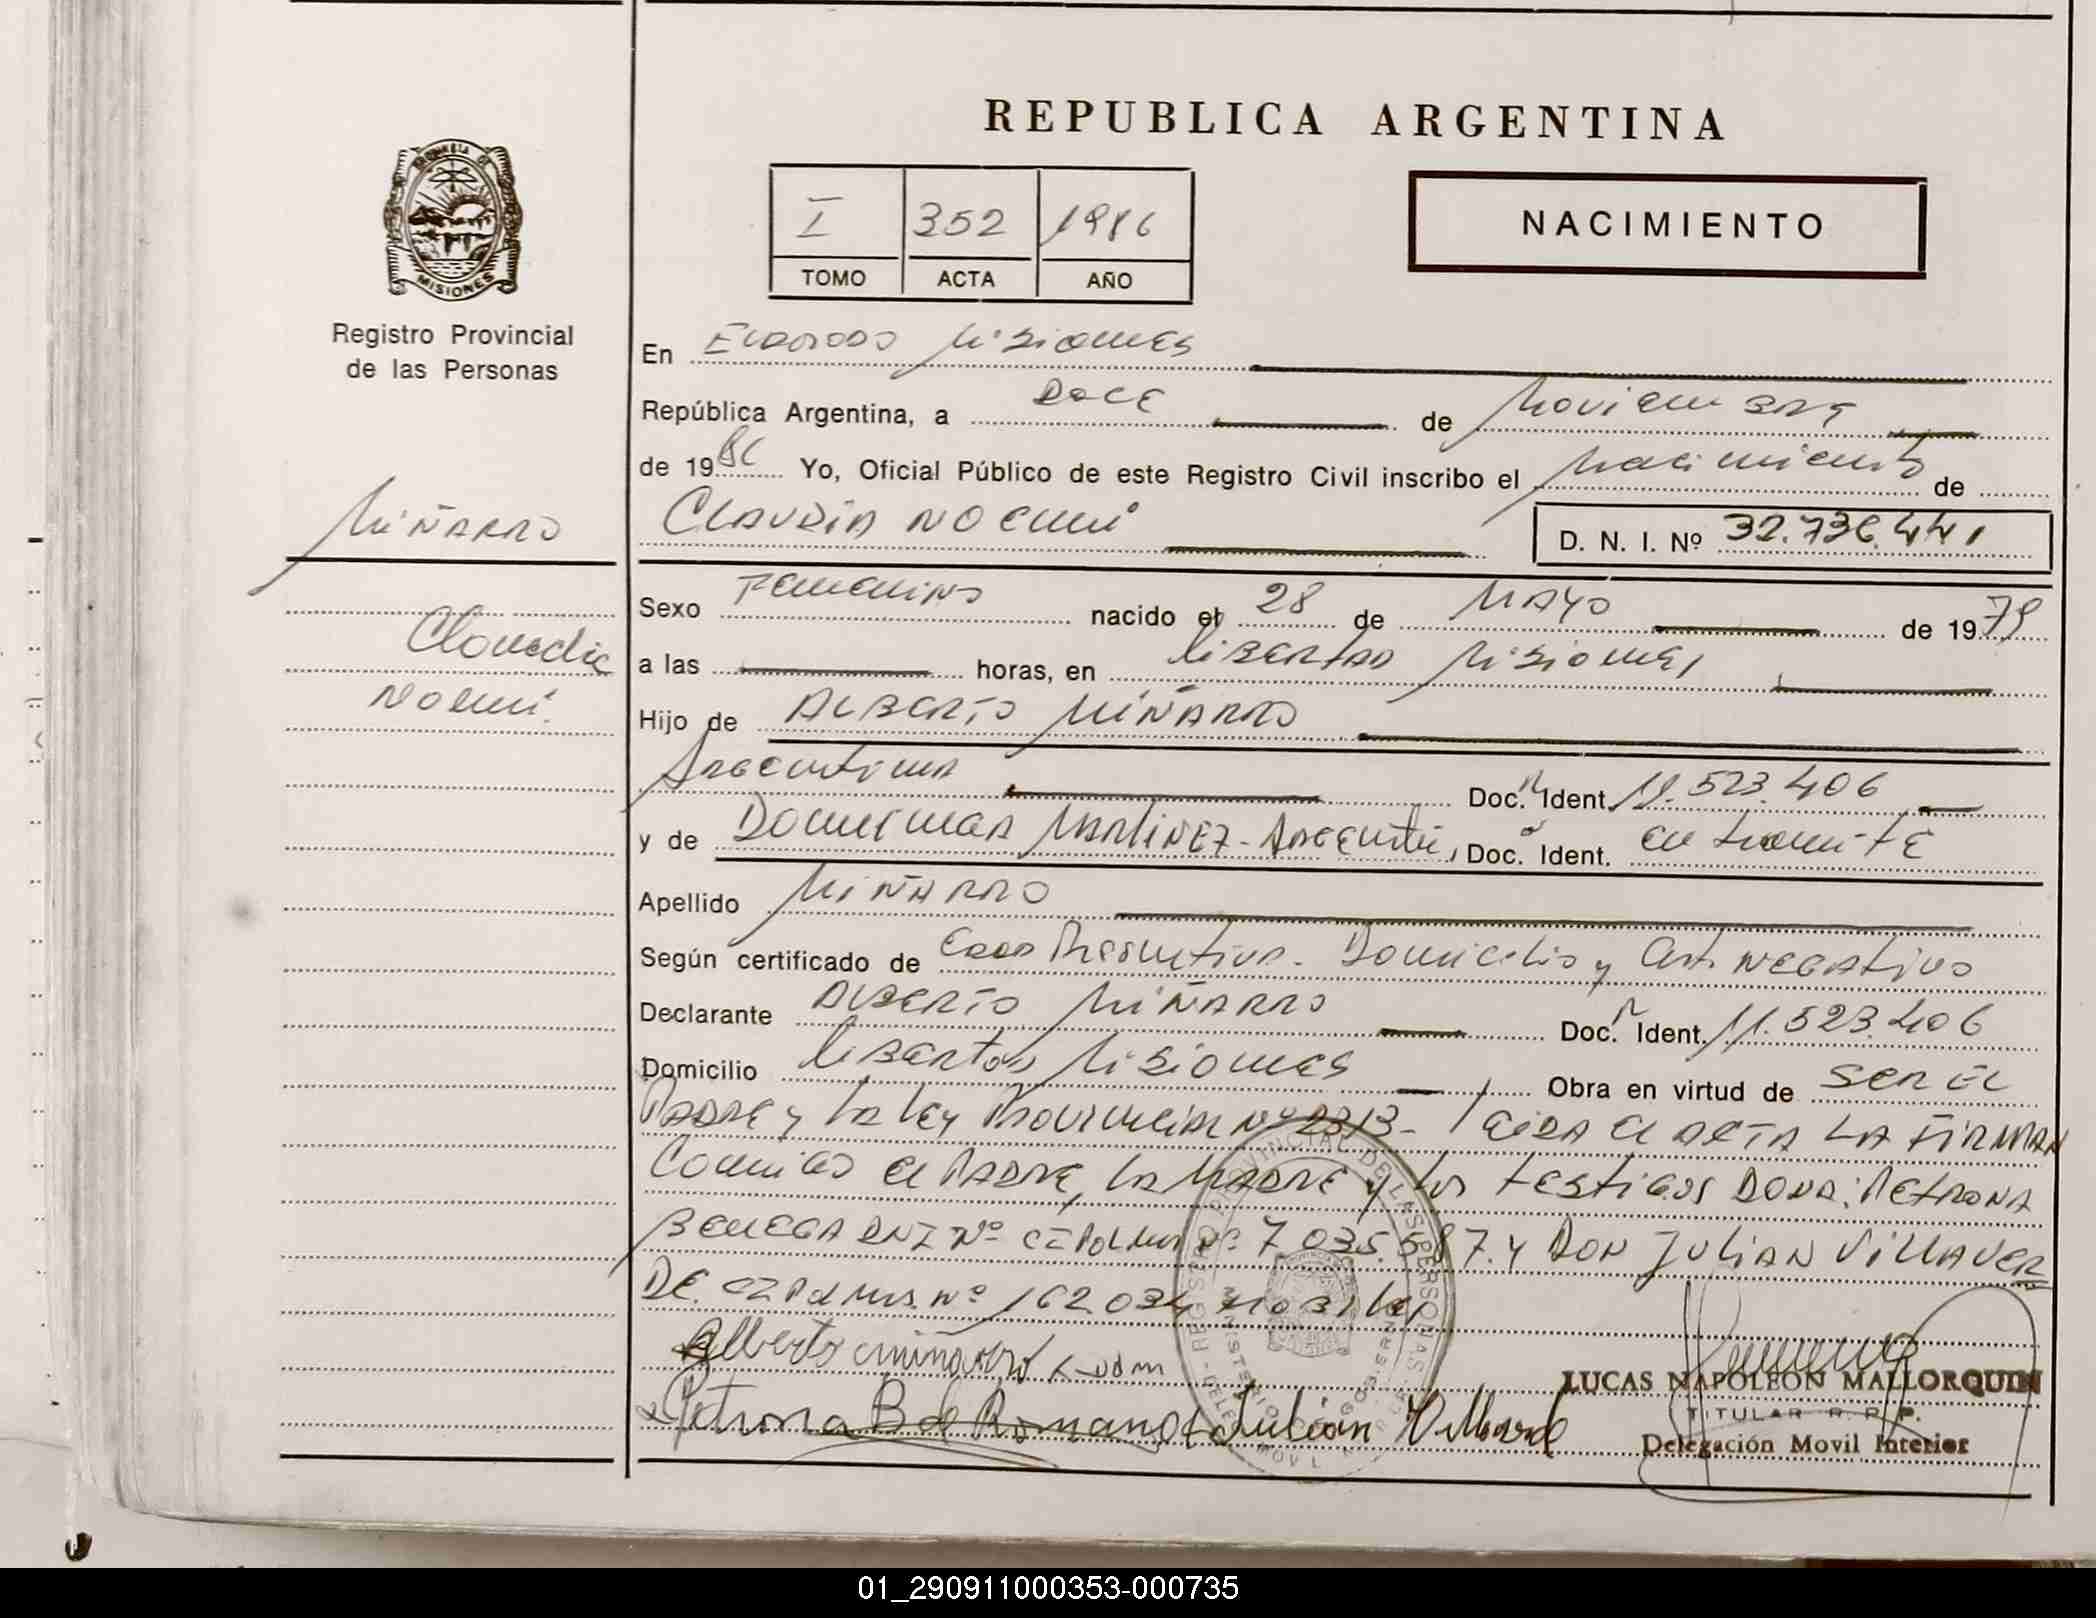 REPUBLICA ARGENTINA
PROVINCIA DE
MISIONES
Registro Provincial
de las Personas
I 352 1986
TOMO ACTA AÑO
NACIMIENTO
En Eldorado Misiones
República Argentina, a Doce de Noviembre
de 1986 Yo, Oficial Público de este Registro Civil inscribo el Nacimiento de
MIÑARRO
CLAUDIA NOEMI
D. N. I. Nº 32.736.441
Claudia
Noemi.
Sexo Femenino nacido el 28 de MAYO de 1979
a las horas, en Libertad Misiones
Hijo de ALBERTO MIÑARRO
Argentina Doc. Ident. M. 523.406
y de MARTINEZ - Argentina, Doc. Ident. en tramite
Apellido MIÑARRO
Según certificado de Edad Presuntiva. Domicilio y Cert. Negativo
Declarante ALBERTO MIÑARRO Doc. Ident. 11.523.406
Domicilio Libertad Misiones Obra en virtud de SER EL
PADRE y la Ley Provincial Nº 2313- Leida el ACTA LA FIRMAN
Conmigo el PADRE, la MADRE y los testigos DOÑA: PETRONA
BENEGA DNI Nº CI Pol Mis Nº 7 035.587. y DON JULIAN VILLAVER
DE. CI Pol Mis. Nº 162.034
Alberto miñarro
Petrona B de Romano Julián
LUCAS NAPOLEON MALLORQUIN
TITULAR R. P. P.
Delegación Movil Interior
REGISTRO PROVINCIAL DE LAS PERSONAS
MINISTERIO DE GOBIERNO
01_290911000353-000735